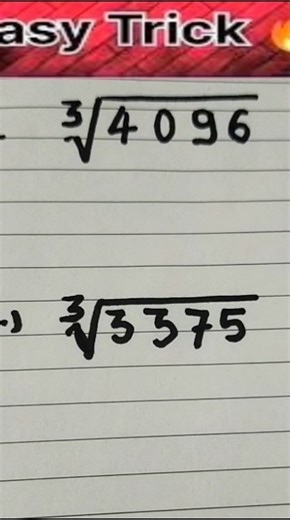 asy Trick
∛4096
.) ∛3375